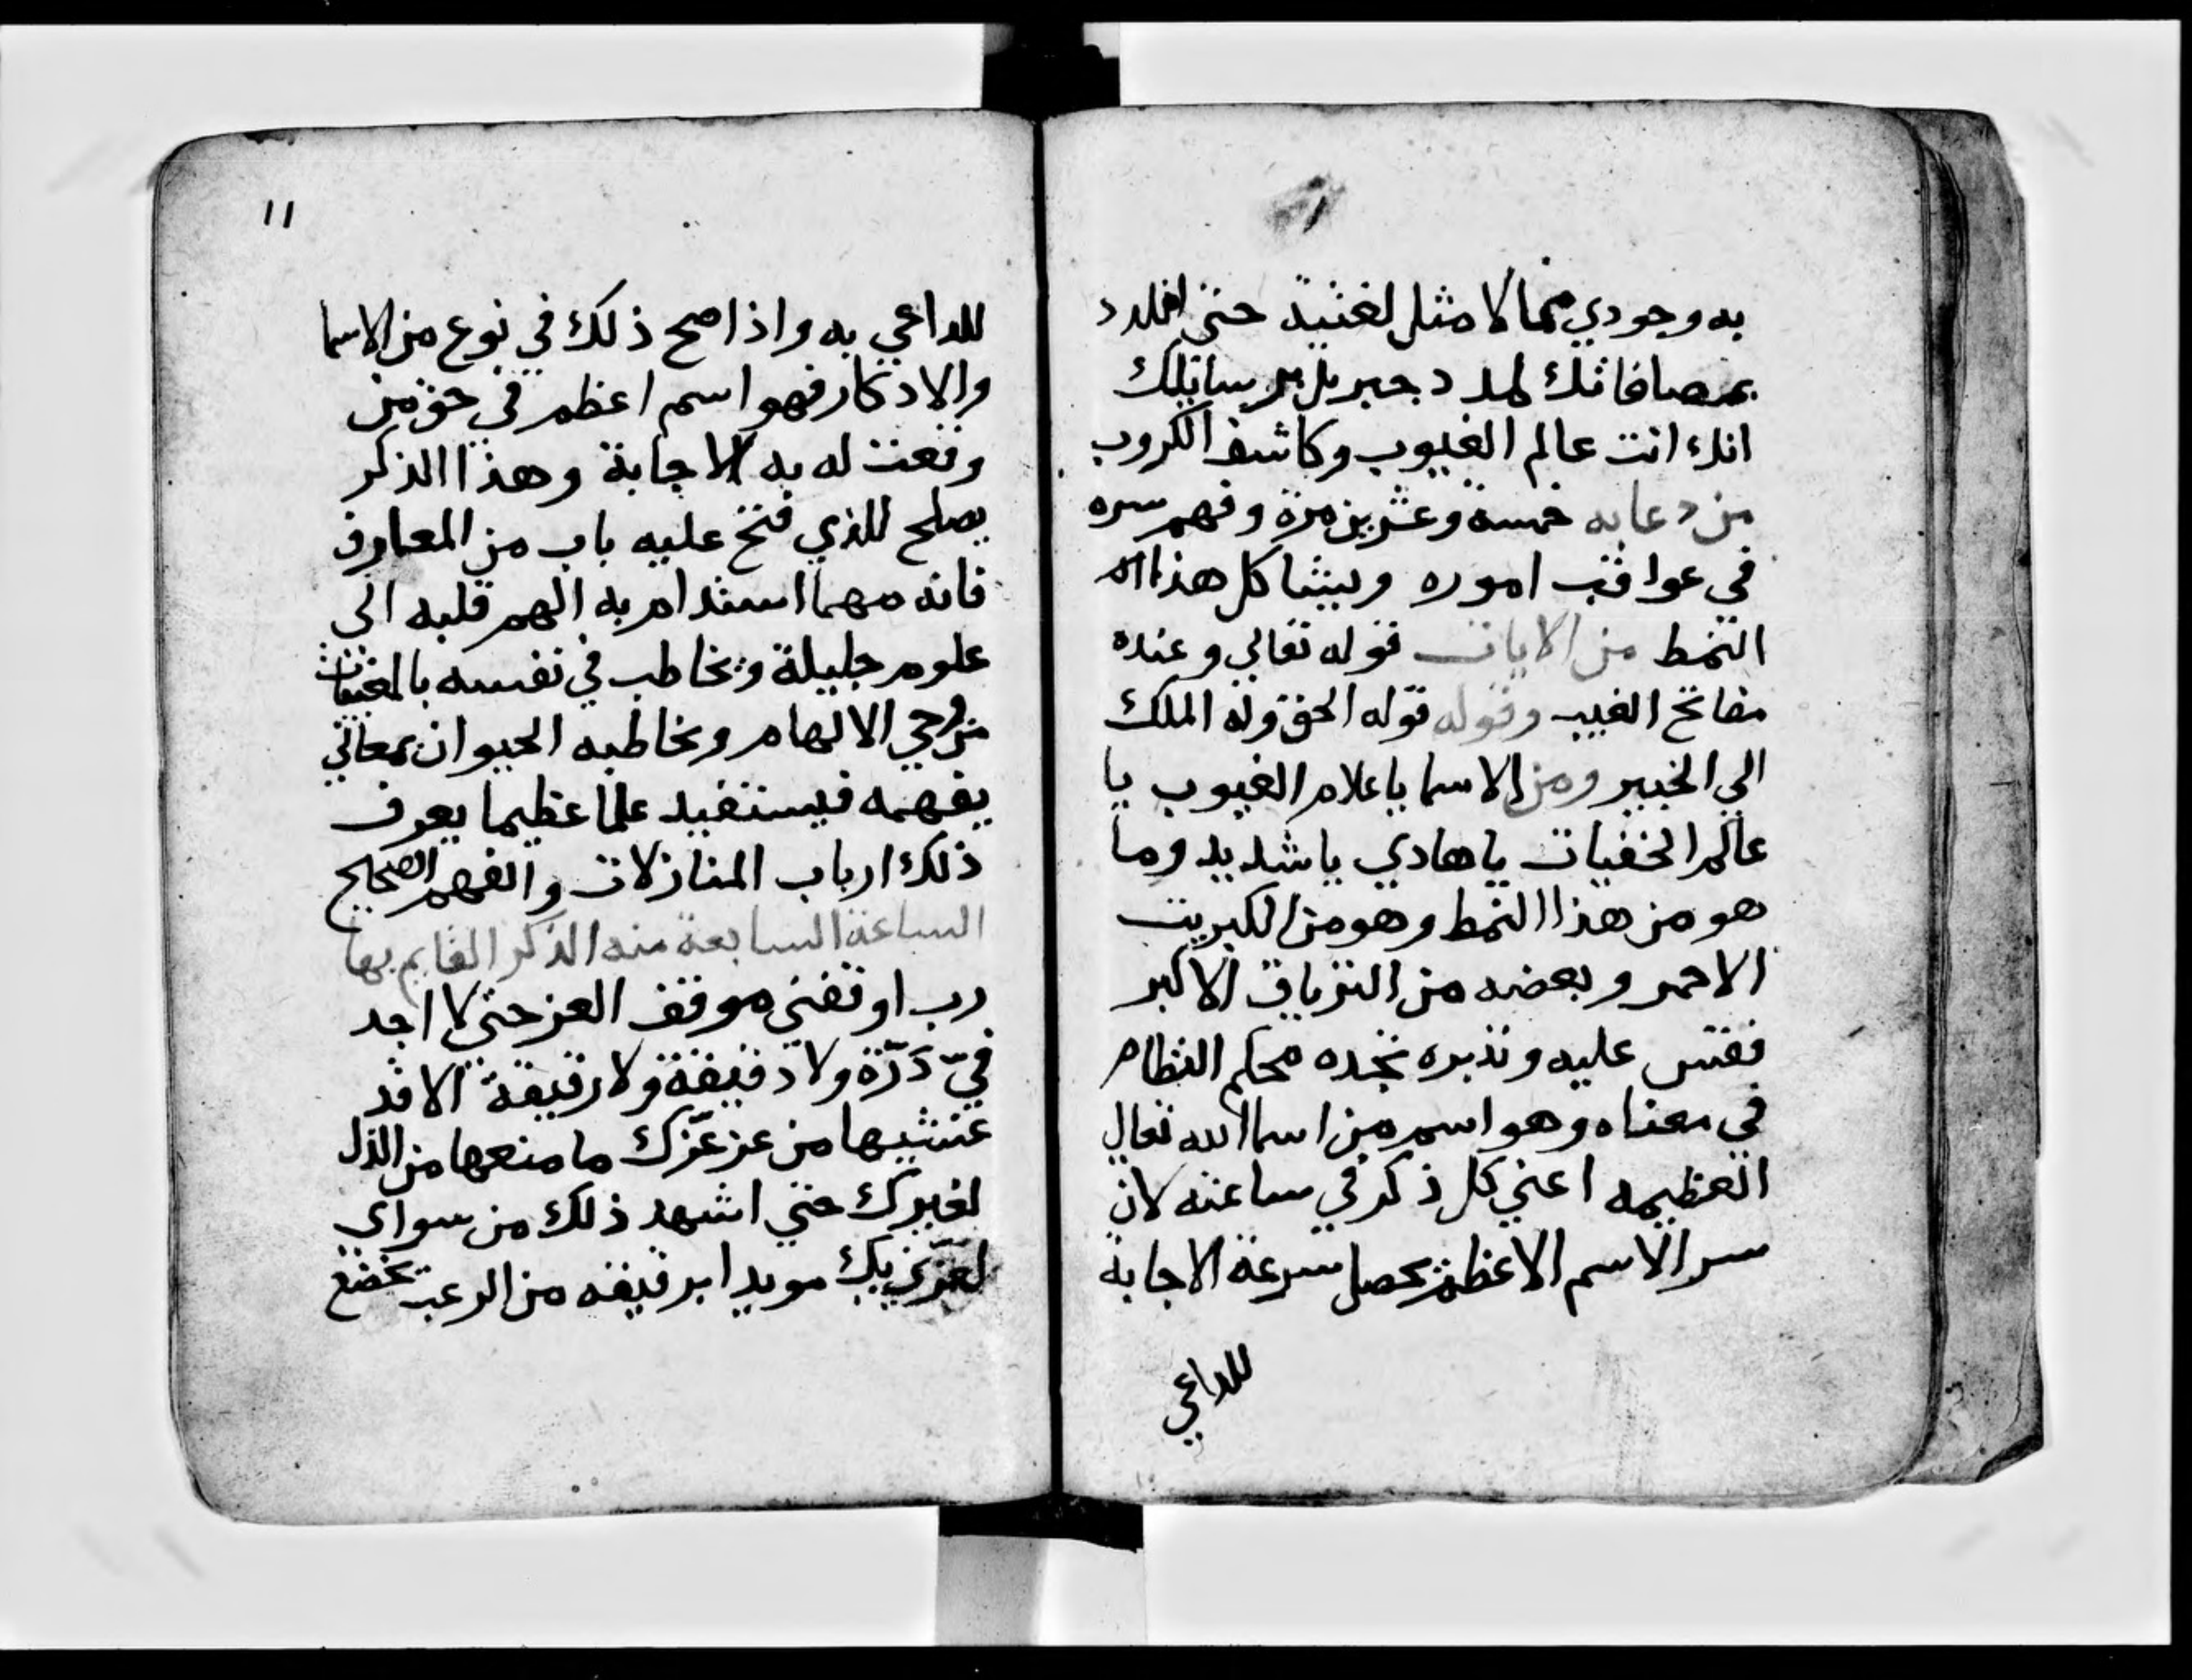 به وجودي مما لا مثل لغنيه حتى
بمصافاتك لمدد جبريل
انك انت عالم الغيوب وكاشف الكروب
من دعا به خمسة وعشرين مرة وفهم سره
في عواقب اموره ويبثا كل هذا
النمط من الايات قوله تعالي وعنده
مفاتح الغيب وقوله قوله الحق وله الملك
الي الخبير ومن الاسما ياعلام الغيوب يا
عالم الخفيات ياهادي ياشديد وما
هو من هذا النمط وهو من الكبريت
الاحمر وبعضه من الترياق الاكبر
ففتش عليه وتدبره تجده محكم النظام
في معناه وهو اسم من اسما الله تعال
العظيمه اعني كل ذكر في ساعته لان
سر الاسم الاعظم يحصل سرعة الاجابة
للداعي
١١
للداعي به واذا صح ذلك في نوع من الاسما
والادكار فهو اسم اعظم في حق من
وقعت له به الاجابة وهذا الذكر
يصلح للذي فتح عليه باب من المعارف
فانه مهما استدام به الهم قلبه الي
علوم جليلة ويخاطب في نفسه بالمغيبات
من وحي الالهام ويخاطبه الحيوان بمعاني
يفهمه فيستفيد علما عظيما يعرف
ذلك ارباب المنازلات والفهم الصحيح
الساعة السابعة منه الذكر القايم بها
رب اوقفني موقف العز حتى لا اجد
فيّ ذرّة ولا دقيقة ولا رقيقة الا قد
غشيها من عز عزّك ما منعها من الذل
لغيرك حتي اشهد ذلك من سواي
لعزتي بك مويدا برقيقه من الرعب تخضع